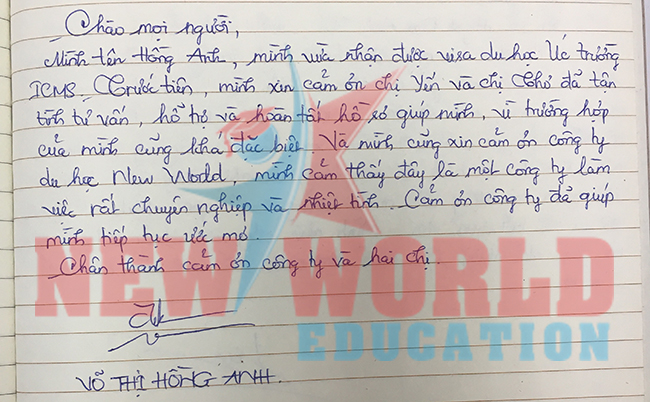 Chào mọi người,
Mình tên Hồng Anh, mình vừa nhận được visa du học Úc trường
ICMS. Trước tiên, mình xin cảm ơn chị Yến và chị Thơ đã tận
tình tư vấn, hỗ trợ và hoàn tất hồ sơ giúp mình, vì trường hợp
của mình cũng khá đặc biệt. Và mình cũng xin cảm ơn công ty
du học New World, mình cảm thấy đây là một công ty làm
việc rất chuyên nghiệp và nhiệt tình. Cảm ơn công ty đã giúp
mình tiếp tục ước mơ.
Chân thành cảm ơn công ty và hai chị.
NEW WORLD
EDUCATION
VÕ THỊ HỒNG ANH.